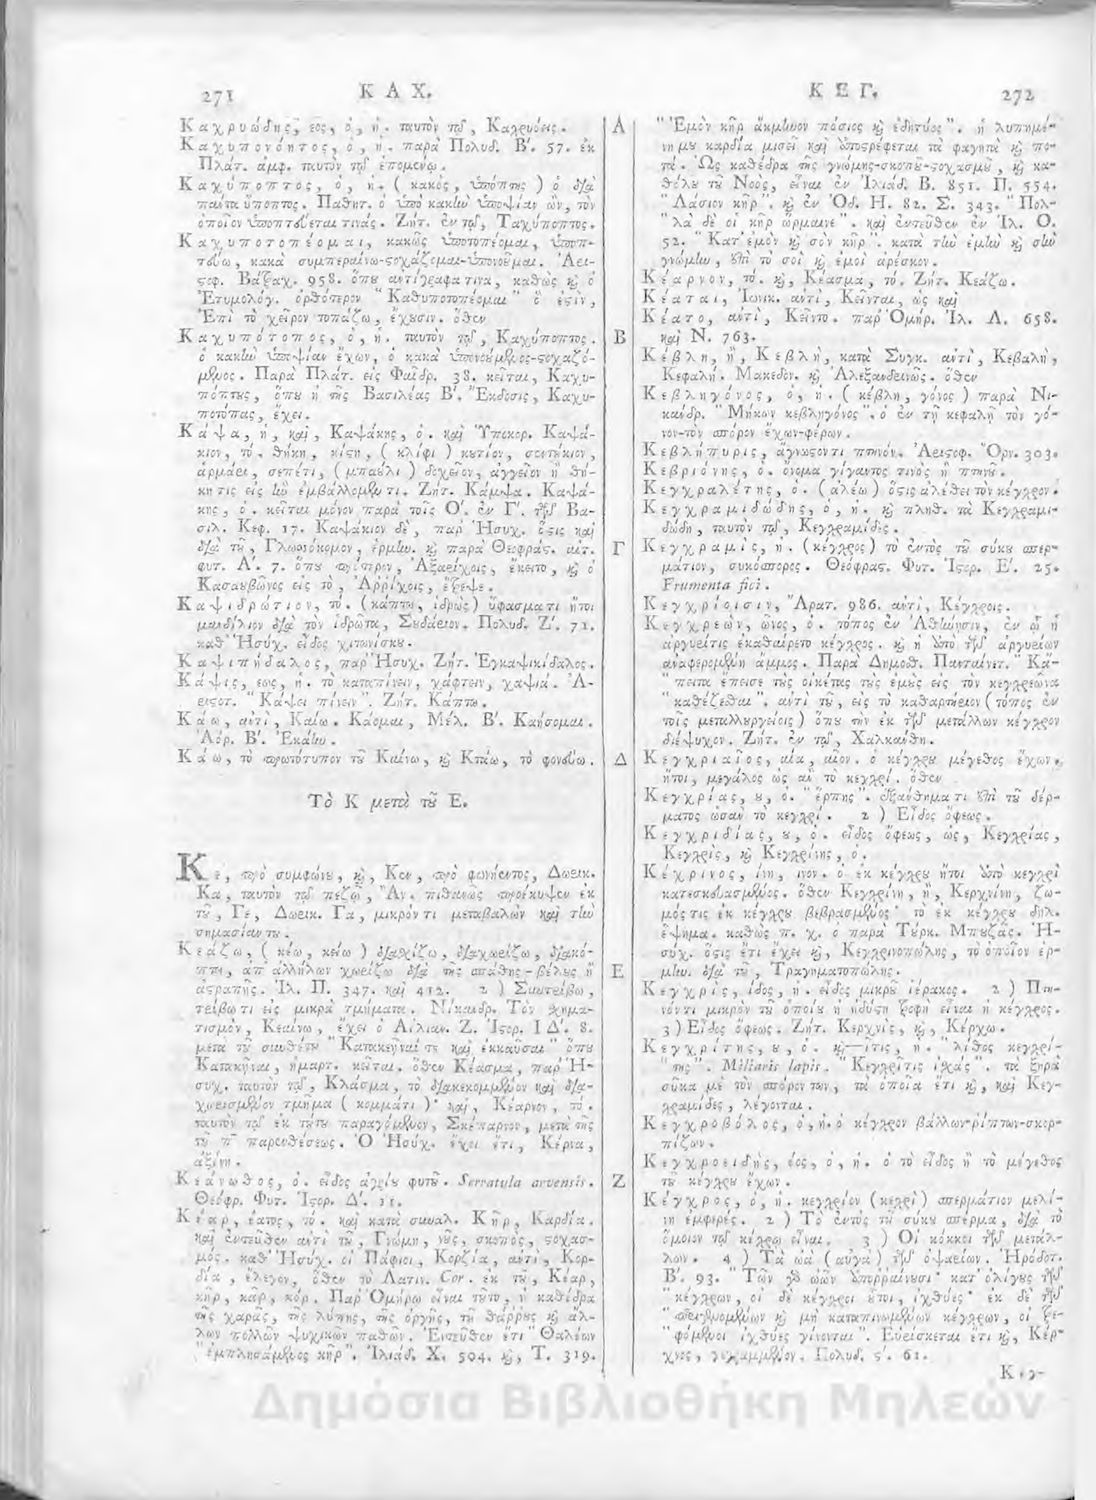 271 Κ Α Χ.
Καχρυώδης, εος, ὁ, ἡ. ταυτὸν τῷ, Καχρυόεις.
Καχυπονόητος, ὁ, ἡ. παρὰ Πολυδ. Β'. 57. ἐκ
Πλάτ. ἀμφ. ταυτὸν τῷ ἑπομένῳ.
Καχύποπτος, ὁ, ἡ. ( κακὸς, ὑπόπτης ) ὁ διὰ
πάντα ὕποπτος. Παθητ. ὁ ὑπὸ κακὴν ὑποψίαν ὢν, τὸν
ὁποῖον ὑποπτεύεταί τινάς. Ζήτ. ἐν τῷ, Ταχύποπτος.
Καχυποτοπέομαι, κακῶς ὑποτοπέομαι, ὑποπ-
τεύω, κακὰ συμπεραίνω-στοχάζομαι-ὑπονοῦμαι. Ἀρι-
στοφ. Βάτραχ. 958. ὅπου ἀντίγραφα τινα, καθὼς καὶ ὁ
Ἐτυμολόγ. ὀρθότερον " Καθυποτοπέομαι " ὅ ἐστιν,
Ἐπὶ τὸ χεῖρον τοπάζω, ἔχουσιν. ὅθεν
Καχυπότοπος, ὁ, ἡ. ταυτὸν τῷ, Καχύποπτος.
ὁ κακὴν ὑποψίαν ἔχων, ὁ κακὰ ὑπονοούμενος-στοχαζό-
μενος. Παρὰ Πλάτ. εἰς Φαῖδρ. 38. κεῖται, Καχυ-
πόπτας, ὅπου ἡ τῆς Βασιλέας Β'. Ἔκδοσις, Καχυ-
ποτόπας, ἔχει.
Κάψα, ἡ, καὶ, Καψάκης, ὁ. καὶ Ὑποκορ. Καψά-
κιον, τὸ. θήκη, κίστη, ( κλίφι ) κυτίον, σεντούκιον,
ἁρμάρι, σεπέτι, ( μπαούλι ) δοχεῖον, ἀγγεῖον ἢ θή-
κη τις εἰς ἣν ἐμβάλλομέν τι. Ζήτ. Κάμψα. Καψά-
κης, ὁ. κεῖται μόνον παρὰ τοῖς Ο'. ἐν Γ'. τῶν Βα-
σιλ. Κεφ. 17. Καψάκιον δὲ, παρ' Ἡσυχ. ὅστις καὶ
διὰ τοῦ, Γλωσσόκομον, ἑρμην. καὶ παρὰ Θεοφράστ. αἰτ.
φυτ. Α'. 7. ὅπου πρότερον, Ἀξαρίχοις, ἔκειτο, καὶ ὁ
Κασαυβῶνος εἰς τὸ, Ἀρρίχοις, ἔτρεψε.
Καψιδρώτιον, τὸ. ( κάπτω, ἱδρὼς ) ὕφασμά τι ἤτοι
μανδίλιον διὰ τὸν ἱδρῶτα, Σουδάριον. Πολυδ. Ζ'. 71.
καθ' Ἡσύχ. εἶδος χιτωνίσκου.
Καψιπήδαλος, παρ' Ἡσυχ. Ζήτ. Ἐγκαψικίδαλος.
Κάψις, εως, ἡ. τὸ καταπίνειν, χάφτειν, χαψιά. Ἀ-
ριστοτ. " Κάψει πίνειν ". Ζήτ. Κάπτω.
Κάω, ἀντὶ, Καίω. Κάομαι, Μέλ. Β'. Καήσομαι.
Ἀόρ. Β'. Ἐκάην.
Κάω, τὸ πρωτότυπον τοῦ Καίνω, καὶ Κτάω, τὸ φονεύω.
Τὸ Κ μετὰ τοῦ Ε.
Κε, πρὸ συμφώνου, καὶ, Κεν, πρὸ φωνήεντος, Δωρικ.
Κα, ταυτὸν τῷ πεζῷ, Ἄν. πιθανῶς προέκυψεν ἐκ
τοῦ, Γε, Δωρικ. Γα, μικρόν τι μεταβαλὼν καὶ τὴν
σημασίαν του.
Κεάζω, ( κέω, κείω ) διασχίζω, διαχωρίζω, διακό-
πτω, ἀπ' ἀλλήλων χωρίζω διὰ τῆς σπάθης-βέλους ἢ
ἀστραπῆς. Ἰλ. Π. 347. καὶ 412. 2 ) Συντρίβω,
τρίβω τι εἰς μικρὰ τμήματα. Νίκανδρ. Τὸν χημα-
τισμὸν, Κεαίνω, ἔχει ὁ Αἰλιαν. Ζ. Ἱστορ. ΙΔ'. 8.
μετὰ τοῦ συνθέτου " Κατακεῆναί τε καὶ ἐκκαῦσαι " ὅπου
Κατακῆναι, ἡμαρτ. κεῖται. ὅθεν Κέασμα, παρ' Ἡ-
συχ. ταυτὸν τῷ, Κλάσμα, τὸ διακεκομμένον καὶ δια-
χωρισμένον τμῆμα ( κομμάτι )· καὶ, Κέαρνον, τὸ.
ταυτὸν τῷ ἐκ τούτου παραγόμενον, Σκέπαρνον, μετὰ τῆς
τοῦ π παρενθέσεως. Ὁ Ἡσύχ. ἔχει ἔτι, Κέρνα,
ἀξίνη.
Κεάνωθος, ὁ. εἶδος ἀγρίου φυτοῦ. Serratula arvensis.
Θεόφρ. Φυτ. Ἱστορ. Δ'. 11.
Κέαρ, έατος, τὸ. καὶ κατὰ συναλ. Κῆρ, Καρδία.
καὶ ἐντεῦθεν ἀντὶ τοῦ, Γνώμη, νοῦς, σκοπὸς, στοχασ-
μός. καθ' Ἡσύχ. οἱ Πάφιοι, Κορζία, ἀντὶ, Καρ-
δία, ἔλεγον, ὅθεν τὸ Λατιν. Cor. ἐκ τοῦ, Κέαρ,
κῆρ, κάρ, κόρ. Παρ' Ὁμήρῳ εἶναι τοῦτο, ἡ καθέδρα
τῆς χαρᾶς, τῆς λύπης, τῆς ὀργῆς, τοῦ θάρρους καὶ ἀλ-
λων πολλῶν ψυχικῶν παθῶν. Ἐντεῦθεν ἔτι " Θαλέων
" ἐμπλησάμενος κῆρ ". Ἰλιάδ. Χ. 504. καὶ, Τ. 319.
Α
Β
Γ
Δ
Ε
Ζ
Κ Ε Γ. 272
" Ἐμὸν κῆρ ἄκμηνον πόσιος καὶ ἐδητύος ". ἡ λυπημέ-
νη μου καρδία μισεῖ καὶ ἀποστρέφεται τὰ φαγητὰ καὶ πο-
τά. Ὡς καθέδρα τῆς γνώμης-σκοποῦ-στοχασμοῦ, καὶ κα-
θόλου τοῦ Νοὸς, εἶναι ἐν Ἰλιάδ. Β. 851. Π. 554.
" Λάσιον κῆρ ". καὶ ἐν Ὀδ. Η. 82. Σ. 343. " Πολ-
" λὰ δέ οἱ κῆρ ὥρμαινε ". καὶ ἐντεῦθεν ἐν Ἰλ. Ο.
52. " Κατ' ἐμὸν καὶ σὸν κῆρ ". κατὰ τὴν ἐμὴν καὶ σὴν
γνώμην, ἐπὶ τὸ σοὶ καὶ ἐμοὶ ἀρέσκον.
Κέαρνον, τὸ. καὶ, Κέασμα, τὸ. Ζήτ. Κεάζω.
Κέαται, Ἰωνικ. ἀντὶ, Κεῖνται, ὡς καὶ
Κέατο, ἀντὶ, Κεῖντο. παρ' Ὁμήρ. Ἰλ. Λ. 658.
καὶ Ν. 763.
Κέβλη, ἡ, Κεβλὴ, κατὰ Συγκ. ἀντὶ, Κεβαλὴ,
Κεφαλή. Μακεδον. καὶ Ἀλεξανδρεινῶς. ὅθεν
Κεβληγόνος, ὁ, ἡ. ( κέβλη, γόνος ) παρὰ Νι-
κάνδρ. " Μήκων κεβληγόνος ". ὁ ἐν τῇ κεφαλῇ τὸν γό-
νον-τὸν σπόρον ἔχων-φέρων.
Κεβλήπυρις, ἄγνωστόν τι πτηνόν. Ἀριστοφ. Ὄρν. 303.
Κεβριόνης, ὁ. ὄνομα γίγαντος τινὸς ἢ πτηνοῦ.
Κεγχραλέτης, ὁ. ( ἀλέω ) ὅστις ἀλέθει τὸν κέγχρον.
Κεγχραμιδώδης, ὁ, ἡ. καὶ πληθ. τὰ Κεγχραμι-
δώδη, ταυτὸν τῷ, Κεγχραμίδες.
Κεγχραμὶς, ἡ. ( κέγχρος ) τὸ ἐντὸς τοῦ σύκου σπερ-
μάτιον, συκόσπορος. Θεόφραστ. Φυτ. Ἱστορ. Ε'. 25.
Frumenta fici.
Κεγχρίοισιν, Ἄρατ. 986. ἀντὶ, Κέγχροις.
Κεγχρεὼν, ῶνος, ὁ. τόπος ἐν Ἀθήνησιν, ἐν ᾧ ἡ
ἀργυρῖτις ἐκαθαίρετο κέγχρος. καὶ ἡ ἀπὸ τῶν ἀργυρείων
ἀναφερομένη ἄμμος. Παρὰ Δημοσθ. Πανταίνετ. " Κἄ-
" πειτα ἔπεισε τοὺς οἰκέτας τοὺς ἐμοὺς εἰς τὸν κεγχρεῶνα
" καθέζεσθαι ". ἀντὶ τοῦ, εἰς τὸ καθαρτήριον ( τόπος ἐν
τοῖς μεταλλουργείοις ) ὅπου τὴν ἐκ τῶν μετάλλων κέγχρον
διέψυχον. Ζήτ. ἐν τῷ, Χαλκάνθη.
Κεγχριαῖος, αία, αῖον. ὁ κέγχρου μέγεθος ἔχων,
ἤτοι, μεγάλος ὡς ἂν τὸ κεγχρί. ὅθεν
Κεγχρίας, ου, ὁ. " ἕρπης ". ἐξάνθημά τι ἐπὶ τοῦ δέρ-
ματος ὡσὰν τὸ κεγχρί. 2 ) Εἶδος ὄφεως.
Κεγχριδίας, ου, ὁ. εἶδος ὄφεως, ὡς, Κεγχρίας,
Κεγχρὶς, καὶ Κεγχρίνης, ὁ.
Κέχρινος, ίνη, ινον. ὁ ἐκ κέγχρου ἤτοι ἀπὸ κεγχρὶ
κατεσκευασμένος. ὅθεν Κεγχρίνη, ἡ, Κερχνίνη, ζω-
μός τις ἐκ κέγχρου βεβρασμένος· τὸ ἐκ κέγχρου δηλ.
ἕψημα. καθὼς π. χ. ὁ παρὰ Τούρκ. Μπουζᾶς. Ἡ-
συχ. ὅστις ἔτι ἔχει καὶ, Κεγχρινοπώλης, τὸ ὁποῖον ἑρ-
μην. διὰ τοῦ, Τραγηματοπώλης.
Κεγχρὶς, ίδος, ἡ. εἶδος μικροῦ ἱέρακος. 2 ) Πτη-
νόν τι μικρὸν τοῦ ὁποίου ἡ ἡδύστη τροφὴ εἶναι ἡ κέγχρος.
3 ) Εἶδος ὄφεως. Ζήτ. Κερχνὶς, καὶ, Κέρχω.
Κεγχρίτης, ου, ὁ. καὶ—ῖτις, ἡ. " λίθος κεγχρί-
" της ". Miliaris lapis. " Κεγχρῖτις ἰσχάς ". τὰ ξηρὰ
σῦκα μὲ τὸν σπόρον των, τὰ ὁποῖα ἔτι καὶ, καὶ Κεγ-
χραμίδες, λέγονται.
Κεγχροβόλος, ὁ, ἡ. ὁ κέγχρον βάλλων-ρίπτων-σκορ-
πίζων.
Κεγχροειδὴς, έος, ὁ, ἡ. ὁ τὸ εἶδος ἢ τὸ μέγεθος
τοῦ κέγχρου ἔχων.
Κέγχρος, ὁ, ἡ. κεγχρίον ( κεχρὶ ) σπερμάτιον μελί-
νῃ ἐμφερές. 2 ) Τὸ ἐντὸς τοῦ σύκου σπέρμα, διὰ τὸ
ὅμοιον τῷ κέγχρῳ εἶναι. 3 ) Οἱ κόκκοι τῶν μετάλ-
λων. 4 ) Τὰ ὠὰ ( αὐγὰ ) τῶν ὀψαρίων. Ἡρόδοτ.
Β'. 93. " Τῶν γὰρ ὠῶν ἀπορραίνουσι· κατ' ὀλίγους τῶν
" κέγχρων, οἱ δὲ κέγχροι οὗτοι, ἰχθύες· ἐκ δὲ τῶν
" περιγινομένων καὶ μὴ καταπινομένων κέγχρων, οἱ τρε-
" φόμενοι ἰχθύες γίνονται ". Εὑρίσκεται ἔτι καὶ, Κέρ-
χνος, γεγραμμένον. Πολυδ. ς'. 61.
Κεγ-
Δημόσια Βιβλιοθήκη Μηλεών